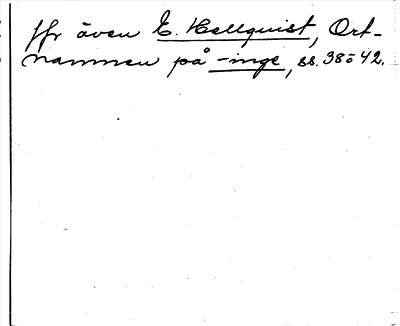 Jfr även E. Hellquist, Ort-
namnen på -inge, ss. 38 o 42.